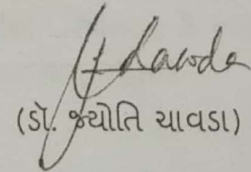 (ડૉ. જ્યોતિ ચાવડા)